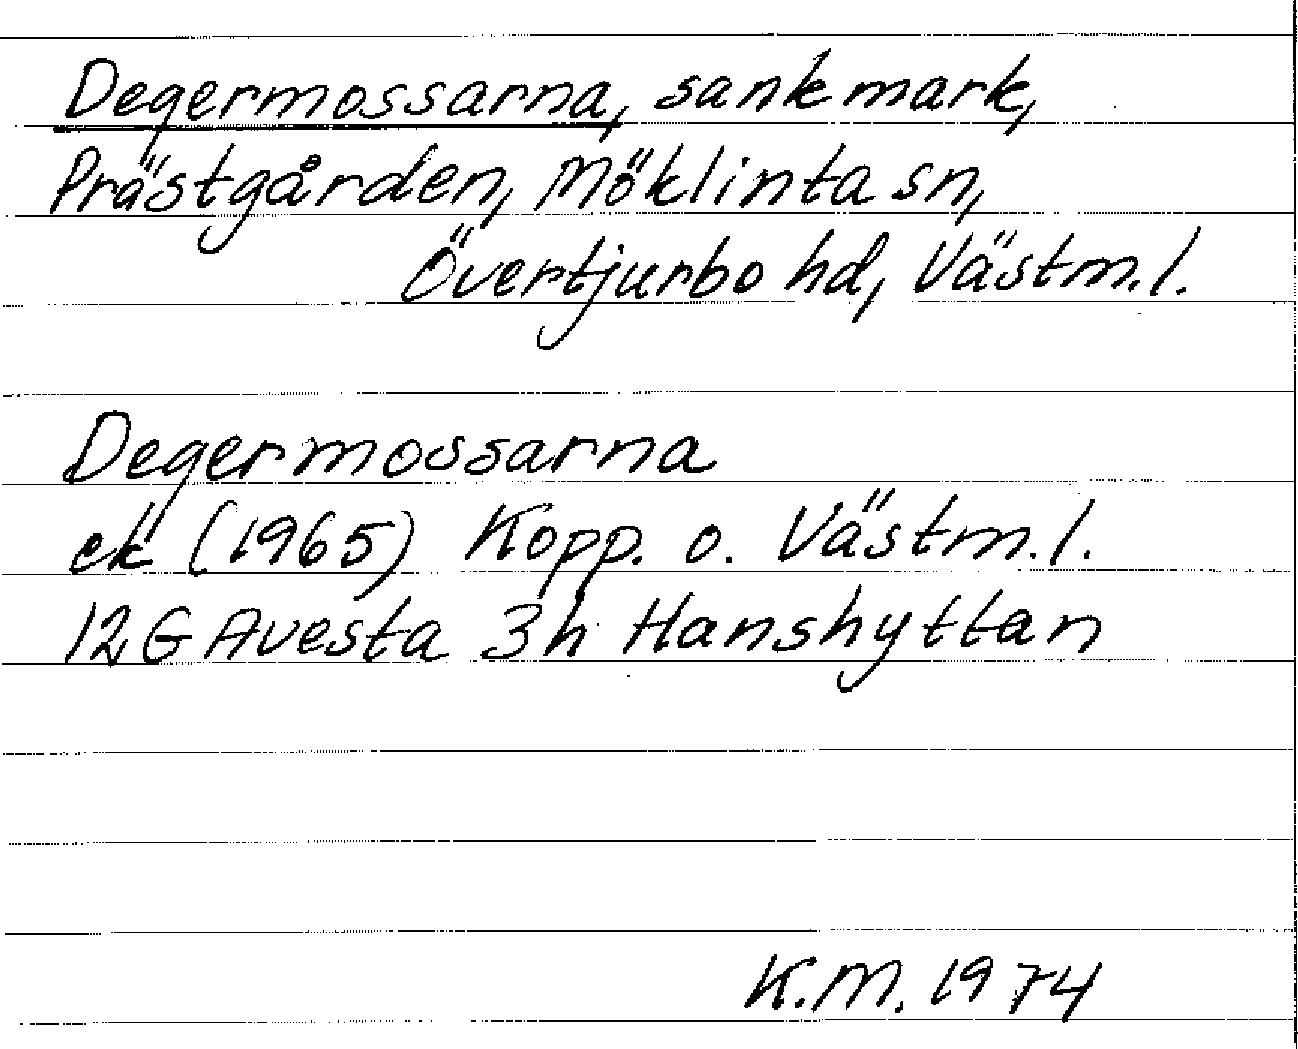 Degermossarna, sankmark,
Prästgården, Möklinta sn,
Övertjurbo hd, Västm.l.
Degermossarna
ek (1965) Kopp. o. Västm.l.
12G Avesta 3h Hanshyttan
K.M. 1974